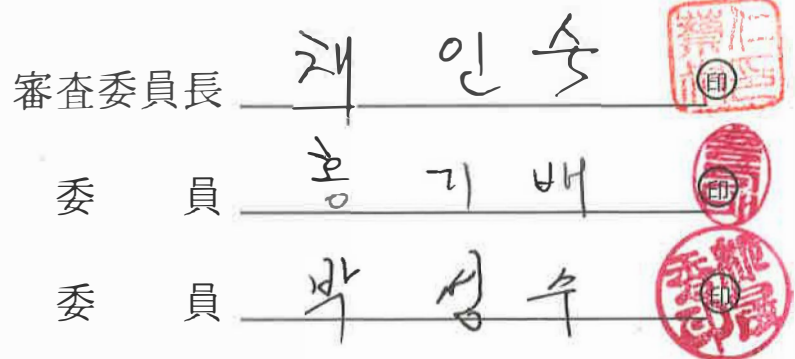 審査委員長 채 인 숙 印
委 員 홍 기 배 印
委 員 박 성 수 印